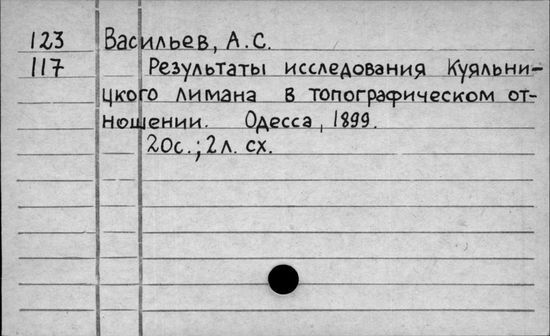 123 Васильев, А.С.
117 Результаты исследования Куяльни-
цкого лимана в топографическом от-
ношении. Одесса, 1899.
20с.; 2л. сх.